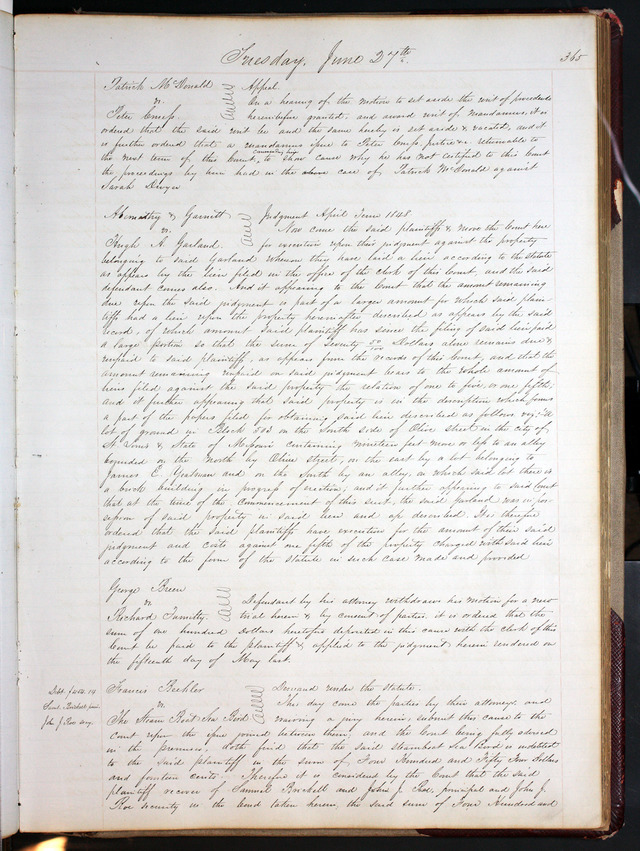 Tuesday, June 27th. 365
Patrick McDonald Appeal.
vs. On a hearing of the motion to set aside the writ of procedendo
Peter heretofore granted, and award writ of mandamus, it is
ordered that the said writ be and the same hereby is set aside & vacated, and it
is further ordered that a mandamus issue to Peter Justice &c. returnable to
the next term of this Court, to show cause why he has not certified to this Court
the proceedings by him had in the above case of Patrick McDonald against
Sarah Dwyer
Abernathy & Garnett Judgment April Term 1848
vs. Now come the said plaintiffs & move the Court here
Hugh A. Garland for execution upon this judgment against the property
belonging to said Garland whereon they have laid a lien according to the Statute
as appears by the lien filed in the office of the clerk of this Court, and the said
defendant comes also. And it appearing to the Court that the amount remaining
due upon the said judgment is part of a larger amount for which said plain-
tiffs had a lien upon the property hereinafter described as appears by the said
record, of which amount said plaintiff has since the filing of said lien paid
a large portion so that the sum of Seventy Dollars alone remains due &
unpaid to said plaintiff, as appears from the records of this Court, and that the
amount remaining unpaid on said judgment bears to the whole amount of
liens filed against the said property the relation of one to five, or one fifth,
and it further appearing that said property is in the description which forms
a part of the papers filed for obtaining said lien described as follows viz: "A
lot of ground in Block 503 on the South side of Olive Street in the city of
St Louis & State of Missouri containing nineteen feet more or less to an alley
bounded on the North by Olive Street, on the east by a lot belonging to
James E. Yeatman and on the South by an alley, on which said lot there is
a brick building in progress of erection, and it further appearing to said Court
that at the time of the commencement of this suit, the said Garland was in pos-
session of said property in said lien and as described. It is therefore
ordered that the said plaintiffs have execution for the amount of their said
judgment and costs against one fifth of the property charged with said lien
according to the form of the Statute in such case made and provided
George Breen
vs. Defendant by his attorney withdraws his motion for a new
Richard trial herein & by consent of parties, it is ordered that the
sum of one hundred Dollars heretofore deposited in this cause with the clerk of this
Court be paid to the plaintiff & applied to the judgment herein rendered on
the fifteenth day of May last.
Debt. $454.14 Francis Beehler Demand under the Statute.
Saml. prin. vs. This day come the parties by their attorneys, and
John J. Roe secy. The Steam Boat Sea Bird waiving a jury herein, submit this cause to the
court upon the issue joined between them, and the Court being fully advised
in the premises, doth find that the said steamboat Sea Bird is indebted
to the said plaintiff in the sum of Four Hundred and Fifty Four dollars
and fourteen cents. Therefore it is considered by the Court that the said
plaintiff recover of Samuel and John J. Roe, principal and John J.
Roe security in the bond taken herein, the said sum of Four Hundred and